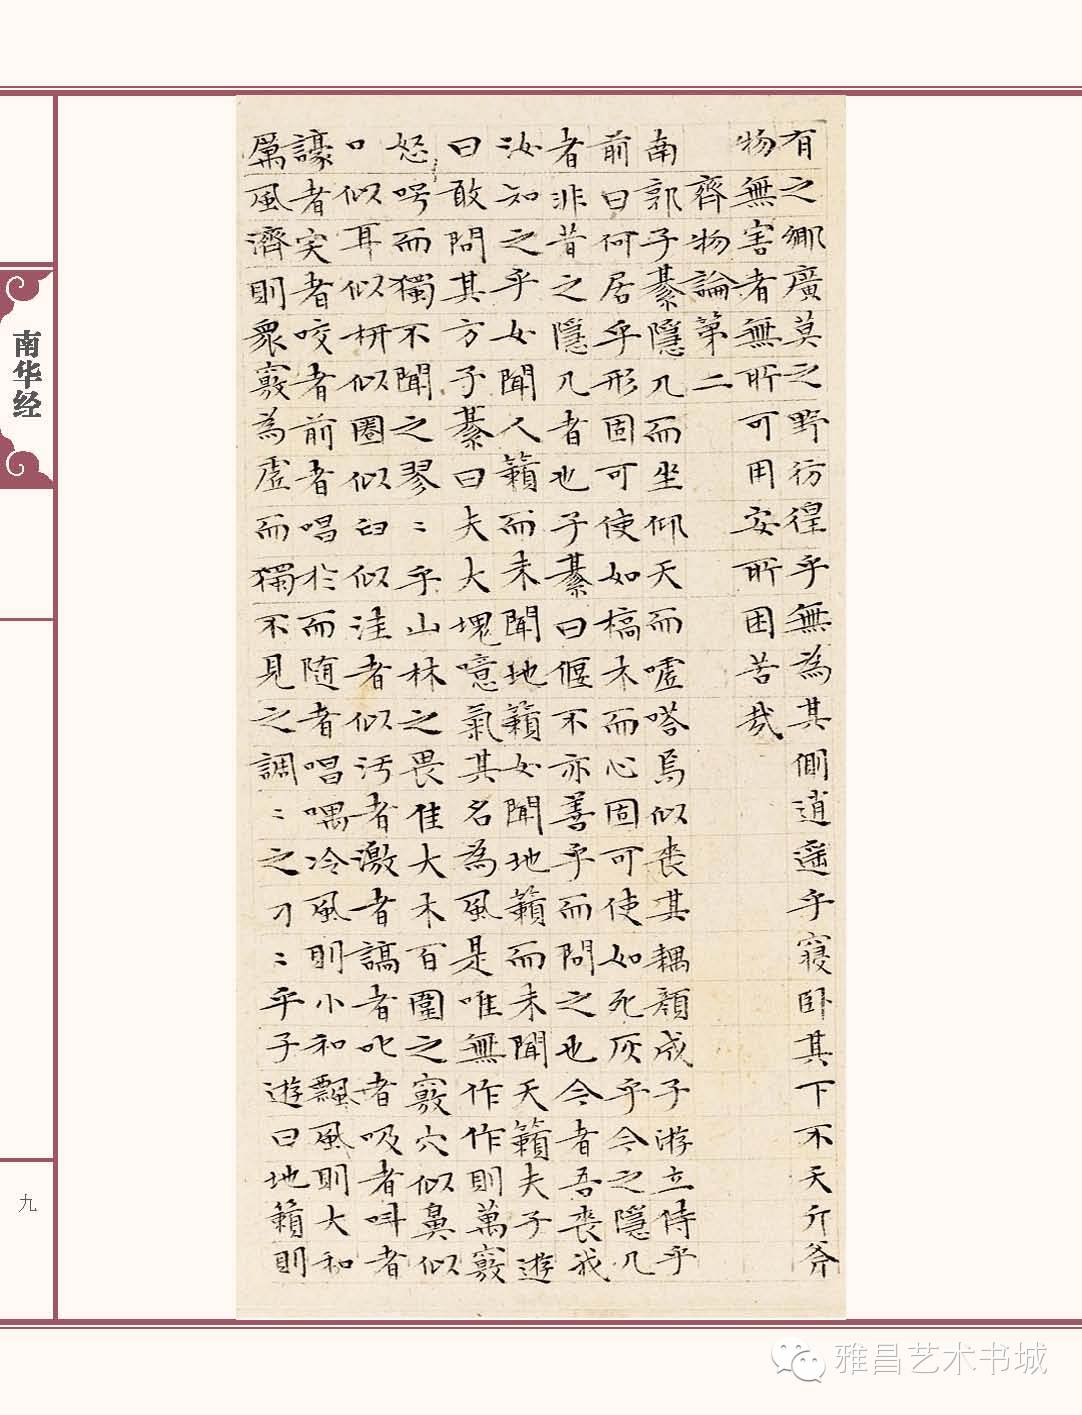 有之鄉廣莫之野彷徨乎無為其側逍遙乎寢卧其下不夭斤斧
物無害者無所可用安所困苦哉
齊物論第二
南郭子綦隱几而坐仰天而嘘嗒焉似喪其耦顏成子游立侍乎
前曰何居乎形固可使如槁木而心固可使如死灰乎今之隱几
者非昔之隱几者也子綦曰偃不亦善乎而問之也今者吾喪我
汝知之乎女聞人籟而未聞地籟女聞地籟而未聞天籟夫子遊
曰敢問其方子綦曰夫大塊噫氣其名為風是唯無作作則萬竅
怒呺而獨不聞之翏〻乎山林之畏隹大木百圍之竅穴似鼻似
口似耳似枅似圈似臼似洼者似污者激者謞者叱者吸者叫者
譹者宎者咬者前者唱於而随者唱喁冷風則小和飄風則大和
厲風濟則衆竅為虛而獨不見之調〻之刁〻乎子遊曰地籟則
南华经
九
雅昌艺术书城